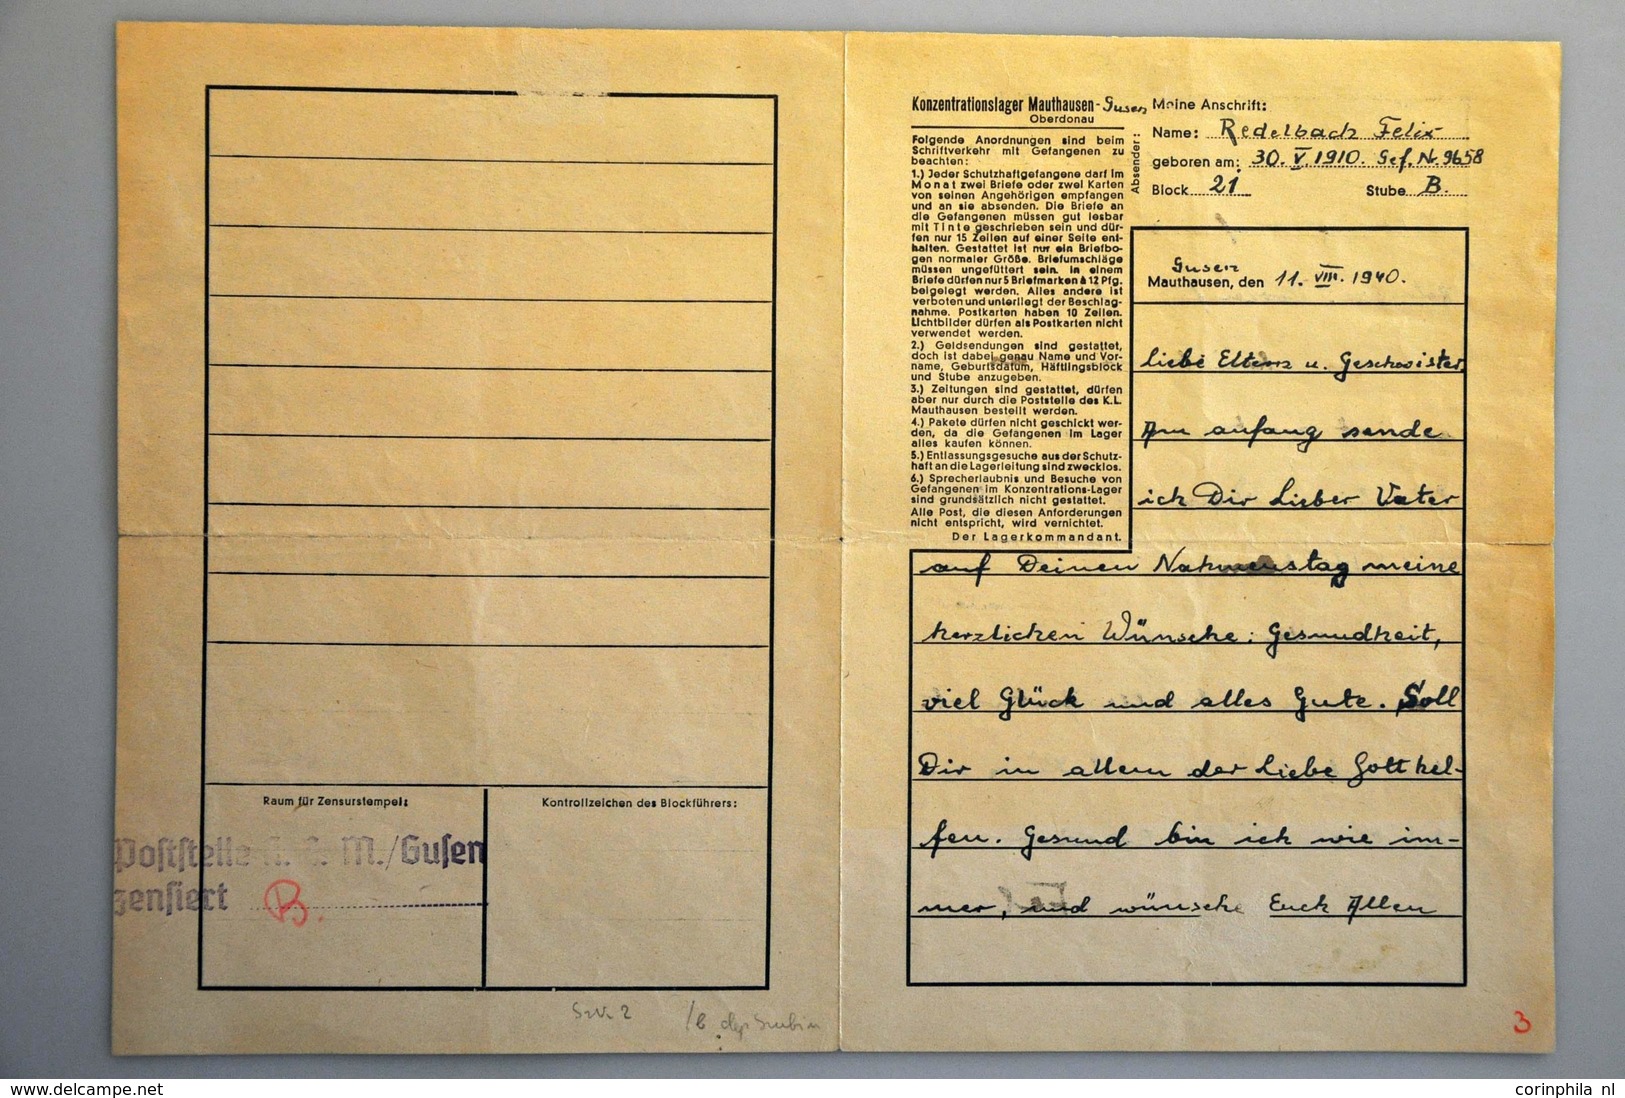 Raum für Zensurstempel:
Kontrollzeichen des Blockführers:
Poststelle K. L. M./Gusen
zensiert
B.
Konzentrationslager Mauthausen-Gusen
Oberdonau
Folgende Anordnungen sind beim
Schriftverkehr mit Gefangenen zu
beachten:
1.) Jeder Schutzhaftgefangene darf im
Monat zwei Briefe oder zwei Karten
von seinen Angehörigen empfangen
und an sie absenden. Die Briefe an
die Gefangenen müssen gut lesbar
mit Tinte geschrieben sein und dür-
fen nur 15 Zeilen auf einer Seite ent-
halten. Gestattet ist nur ein Briefbo-
gen normaler Größe. Briefumschläge
müssen ungefüttert sein. In einem
Briefe dürfen nur 5 Briefmarken à 12 Pfg.
beigelegt werden. Alles andere ist
verboten und unterliegt der Beschlag-
nahme. Postkarten haben 10 Zeilen.
Lichtbilder dürfen als Postkarten nicht
verwendet werden.
2.) Geldsendungen sind gestattet,
doch ist dabei genau Name und Vor-
name, Geburtsdatum, Häftlingsblock
und Stube anzugeben.
3.) Zeitungen sind gestattet, dürfen
aber nur durch die Poststelle des K.L.
Mauthausen bestellt werden.
4.) Pakete dürfen nicht geschickt wer-
den, da die Gefangenen im Lager
alles kaufen können.
5.) Entlassungsgesuche aus der Schutz-
haft an die Lagerleitung sind zwecklos.
6.) Sprecherlaubnis und Besuche von
Gefangenen im Konzentrations-Lager
sind grundsätzlich nicht gestattet.
Alle Post, die diesen Anforderungen
nicht entspricht, wird vernichtet.
Der Lagerkommandant.
Absender:
Meine Anschrift:
Name: Redelbach Felix
geboren am: 30. V. 1910. Gef. Nr. 9658
Block 21 Stube B.
Gusen
Mauthausen, den 11. VIII. 1940.
liebe Eltern u. Geschwister,
Am anfang sende
ich Dir Lieber Vater
auf Deinen Nahmenstag meine
herzlichen Wünsche: Gesundheit,
viel Glück und alles Gute. Soll
Dir in allem der Liebe Gott hel-
fen. Gesund bin ich wie im-
mer, und wünsche Euch Allen
3
www.delcampe.net
corinphila nl